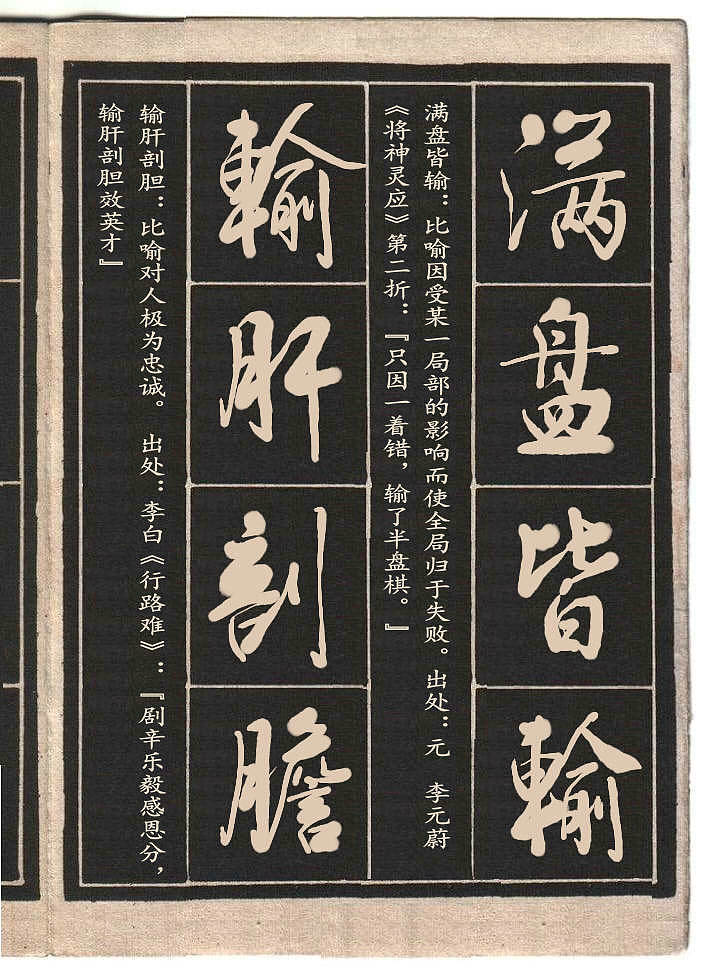 满盘皆输
满盘皆输：比喻因受某一局部的影响而使全局归于失败。出处：元 李元蔚
《将神灵应》第二折：『只因一着错，输了半盘棋。』
輸肝剖膽
输肝剖胆：比喻对人极为忠诚。 出处：李白《行路难》：『剧辛乐毅感恩分，
输肝剖胆效英才』